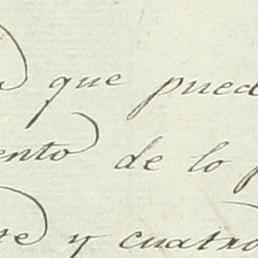 que pued
ento de lo p
re y cuatro